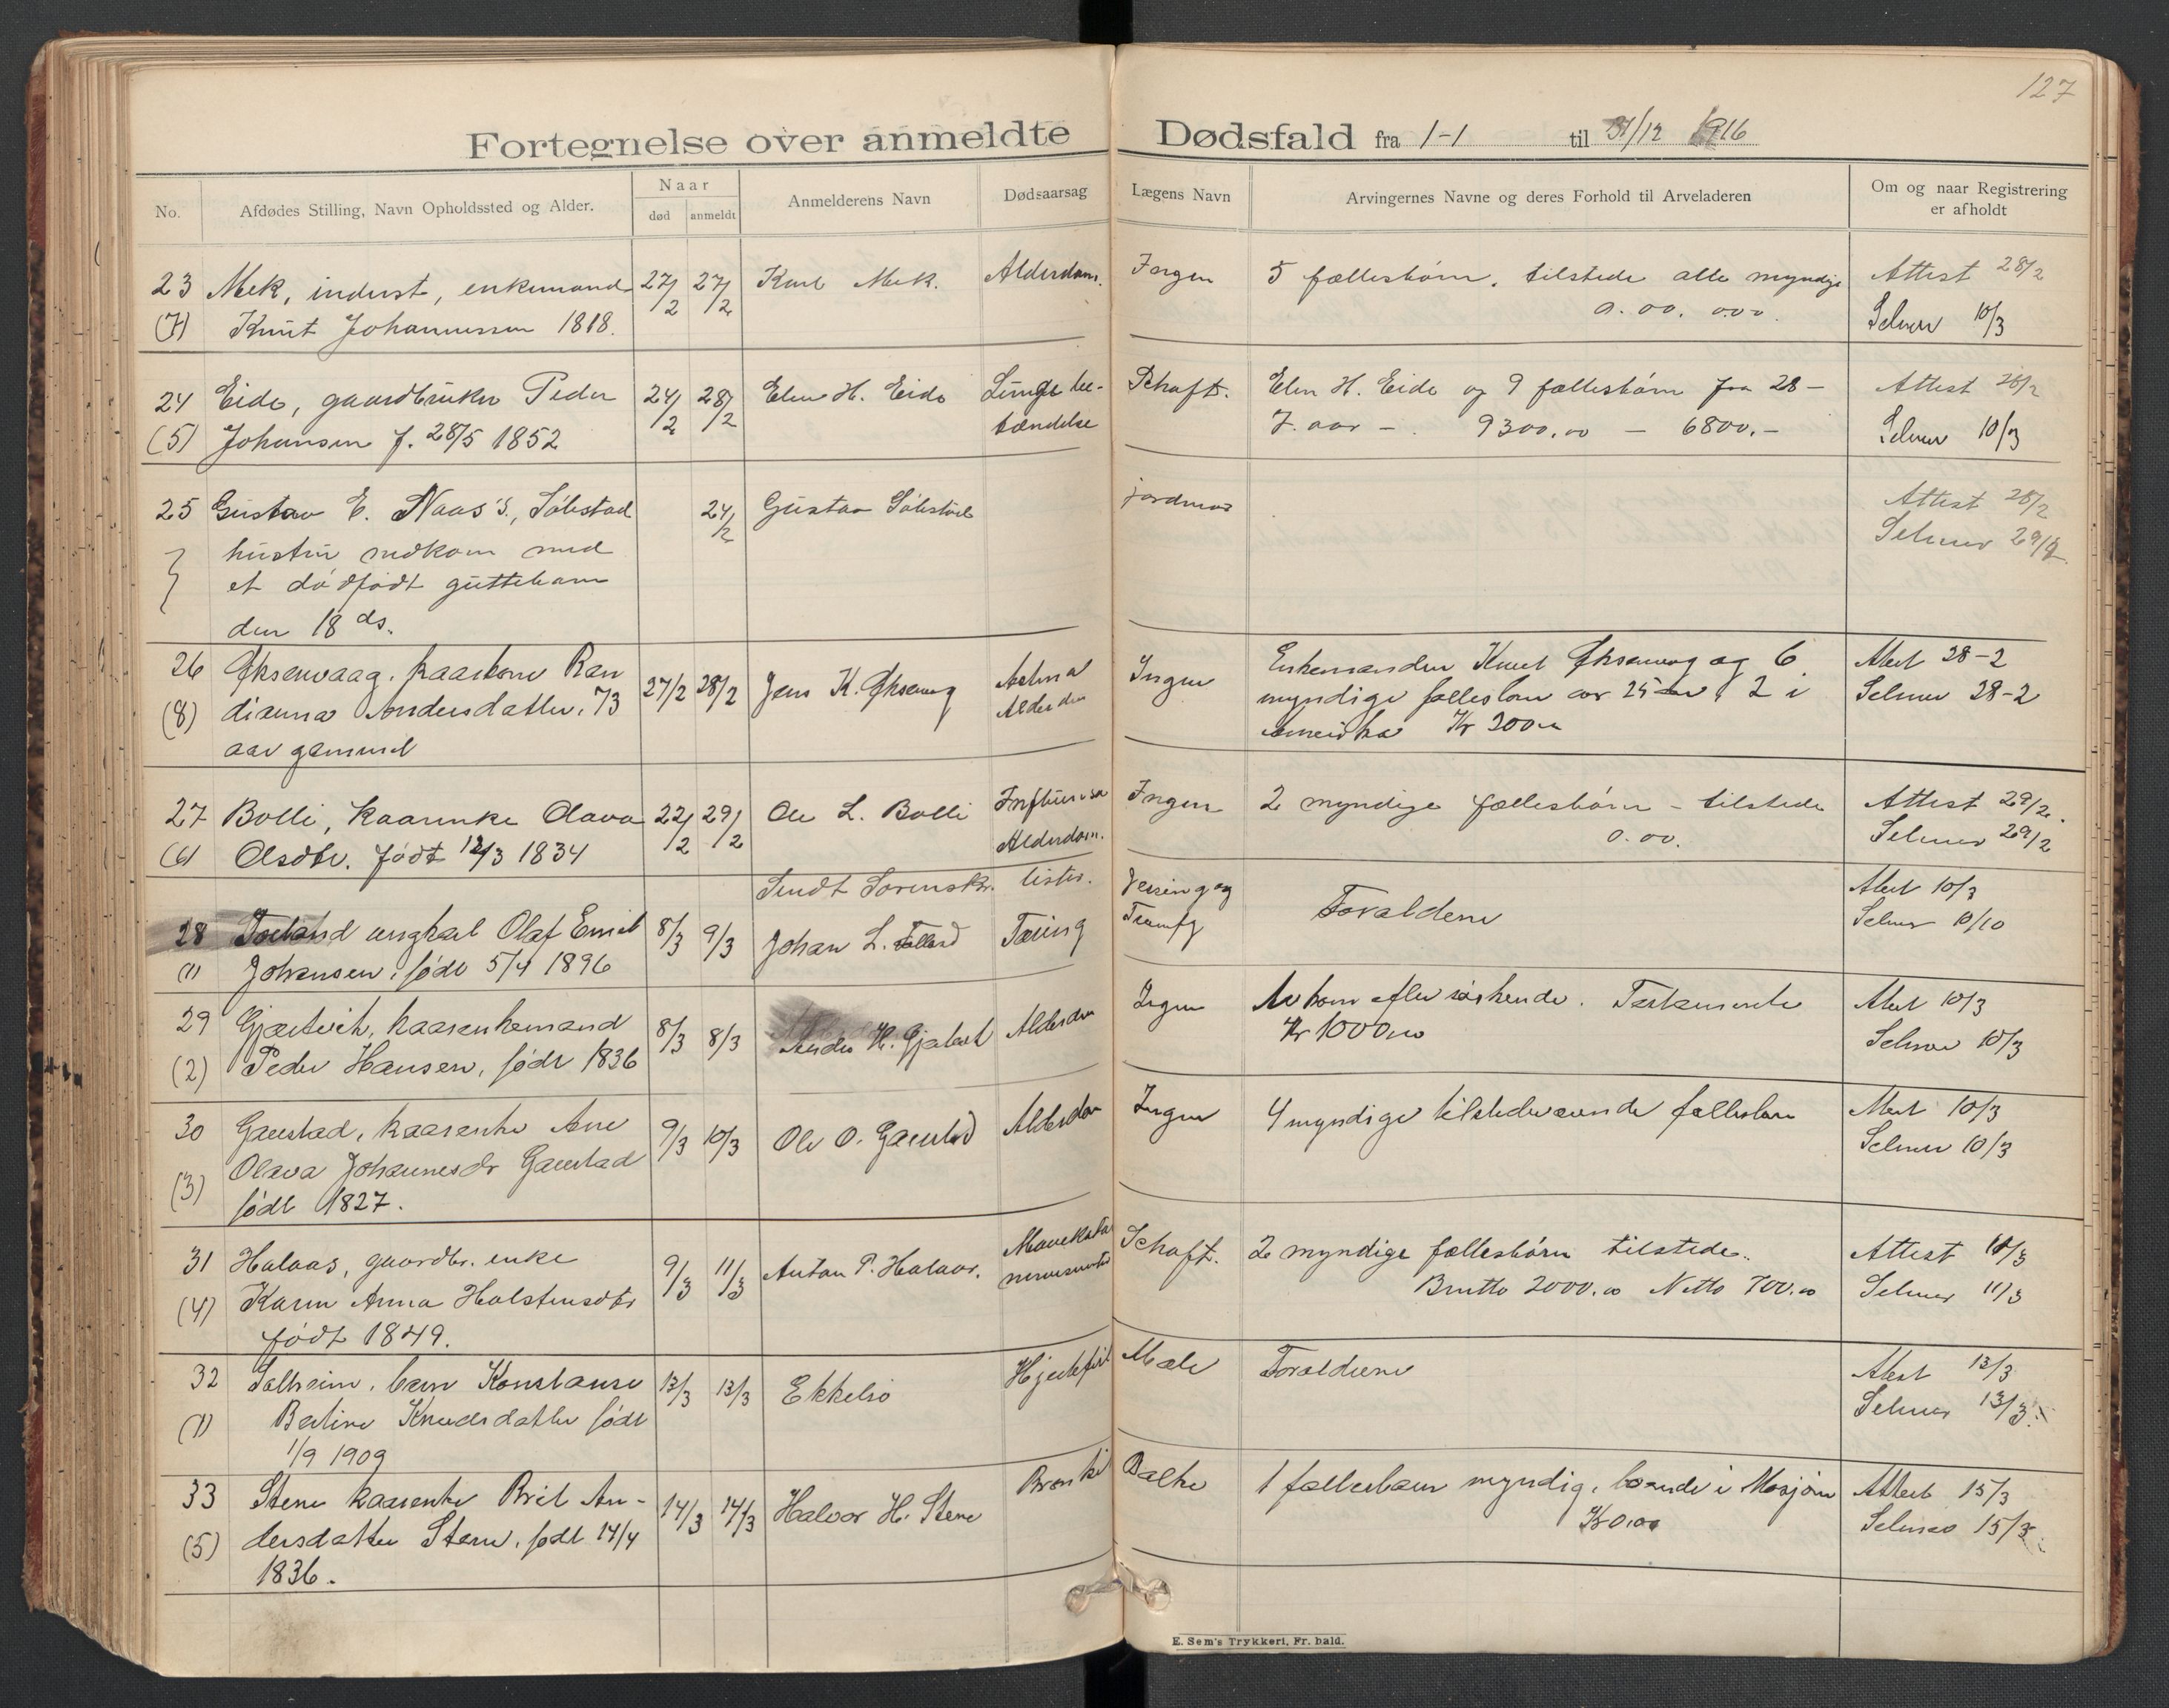 127
Fortegnelse over anmeldte Dødsfald fra 1-1 til 31/12 1916
No. Afdødes Stilling, Navn Opholdssted og Alder. Naar død anmeldt Anmelderens Navn Dødsaarsag Lægens Navn Arvingernes Navne og deres Forhold til Arveladeren Om og naar Registrering er afholdt
23 Mek, inderst, enkemand 27/2 27/2 Karl Mek. Alderdom. Ingen 5 fællesbørn, tilstede alle myndige Attest 28/2
(7) Knut Johannessen 1818. 0.00. 0.00. Selmer 10/3
24 Eide, gaardbruker Peder 24/2 28/2 Elen H. Eide Lunge be- Schaft. Elen H. Eide og 9 fællesbørn fra 28- Attest 28/2
(5) Johansen f. 28/5 1852 tændelse 7 aar - 9300,00 - 6800.- Selmer 10/3
25 Gustav E. Naas's, Sølestad 24/2 Gustav Sølestad jordmor Attest 28/2
hustru nedkom med Selmer 29/2
et dødfødt guttebarn
den 18 ds.
26 Øksenvaag, kaarkone Ran 27/2 28/2 Jens K. Øksenvog Astma Ingen Enkemanden Knut Øksenvog og 6 Atest 28-2
(8) dianna Andersdatter, 73 Alderdom myndige fællesbørn over 25 aar, 2 i Selmer 28-2
aar gammel Amerika Kr 200
27 Bolli, Kaarenke Olava 22/2 29/2 Ole L. Bolli Influensa Ingen 2 myndige fællesbørn - tilstede Attest 29/2.
(6) Olsdtr. født 12/3 1834 Alderdom. 0.00. Selmer 29/2
Sendt Sorenskr. lister.
28 ungkarl Olaf Emil 8/3 9/3 Johan L. Tæring og Foraldene Atest 10/3
(1) Johansen, født 5/4 1896 Selmer 10/10
29 Gjætvik, kaarenkemand 8/3 8/3 H. Gjætvik Alderdom Ingen søskende. Testamente Atest 10/3
(2) Peder Hansen, født 1836 Kr 1000 Selmer 10/3
30 Gaustad, kaarenke Ane 9/3 10/3 Ole O. Gaustad Alderdom Ingen 4 myndige tilstedeværende fællesbørn Atest 10/3
(3) Olava Johannesdr Gaustad Selmer 10/3
født 1827.
31 Halaas, gaardbr. enke 9/3 11/3 Anton P. Halaas. Schaft. 2 myndige fællesbørn tilstede. Attest 11/3
(4) Karen Anna Holstensdtr Brutto 2000.00 Netto 700.00 Selmer 11/3
født 1849.
32 Solheim, barn Konstanse 13/3 13/3 Ekkelsø Hjertefeil Mæle Foraldrene Atest 13/3
(1) Berline Knudsdatter født Selmer 13/3
1/9 1909
33 Stene kaarenke Brit An- 14/3 14/3 Halvor H. Stene Balke 1 fællesbarn myndig, boende i Mosjøen Attest 15/3
(5) dersdatter Stene, født 14/4 Kr 0,00 Selmer 15/3
1836.
E. Sem's Trykkeri, Fr. hald.